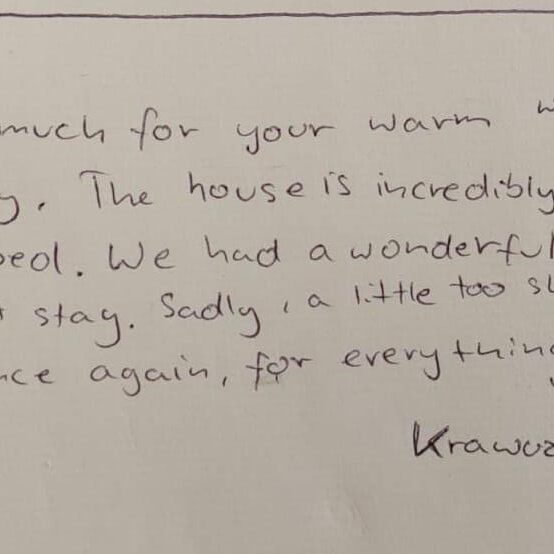 much for your warm w
y. The house is incredibly
peol. We had a wonderful
stay. Sadly, a little too s
nce again, for everything
Krawcz